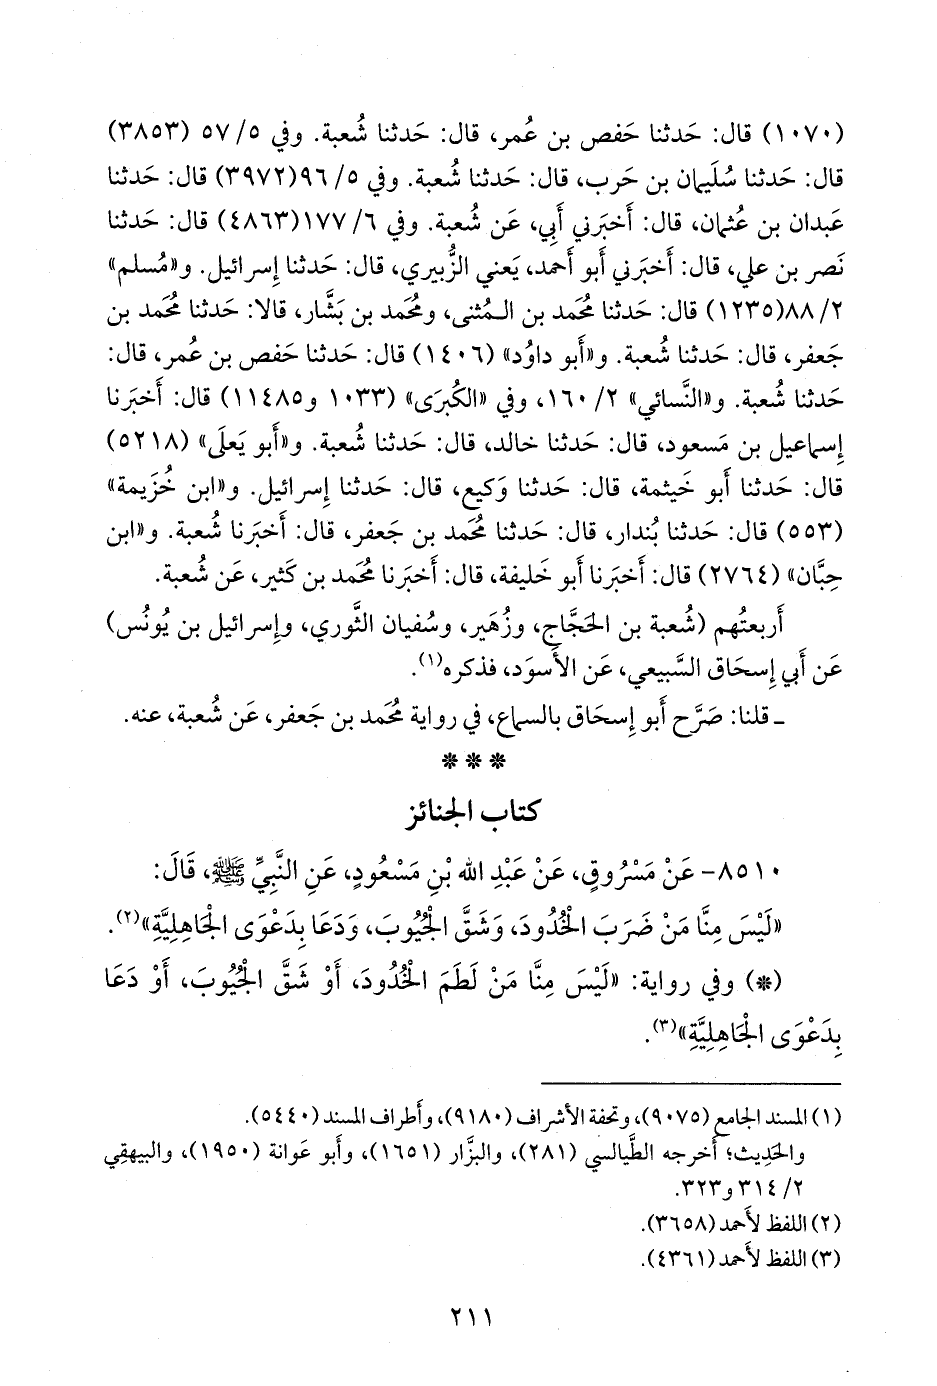 (١٠٧٠) قال: حَدثنا حَفص بن عُمر، قال: حَدثنا شُعبة. وفي ٥/ ٥٧ (٣٨٥٣)
قال: حَدثنا سُلَيمان بن حَرب، قال: حَدثنا شُعبة. وفي ٥/ ٩٦(٣٩٧٢) قال: حَدثنا
عَبدان بن عُثمان، قال: أَخبَرني أَبي، عَن شُعبة. وفي ٦/ ١٧٧(٤٨٦٣) قال: حَدثنا
نَصر بن علي، قال: أَخبَرني أَبو أَحمد، يَعني الزُّبيري، قال: حَدثنا إِسرائيل. و«مُسلم»
٢/ ٨٨(١٢٣٥) قال: حَدثنا مُحمد بن الـمُثنى، ومُحمد بن بَشَّار، قالا: حَدثنا مُحمد بن
جَعفر، قال: حَدثنا شُعبة. و«أَبو داوُد» (١٤٠٦) قال: حَدثنا حَفص بن عُمر، قال:
حَدثنا شُعبة. و«النَّسائي» ٢/ ١٦٠، وفي «الكُبرَى» (١٠٣٣ و١١٤٨٥) قال: أَخبَرنا
إِسماعيل بن مَسعود، قال: حَدثنا خالد، قال: حَدثنا شُعبة. و«أَبو يَعلَى» (٥٢١٨)
قال: حَدثنا أَبو خَيثمة، قال: حَدثنا وَكيع، قال: حَدثنا إِسرائيل. و«ابن خُزيمة»
(٥٥٣) قال: حَدثنا بُندار، قال: حَدثنا مُحمد بن جَعفر، قال: أَخبَرنا شُعبة. و«ابن
حِبَّان» (٢٧٦٤) قال: أَخبَرنا أَبو خَليفة، قال: أَخبَرنا مُحمد بن كَثير، عَن شُعبة.
أَربعتُهم (شُعبة بن الحَجَّاج، وزُهَير، وسُفيان الثَّوري، وإِسرائيل بن يُونُس)
عَن أَبي إِسحَاق السَّبيعي، عَن الأَسوَد، فذكره(١).
ـ قلنا: صَرَّح أَبو إِسحَاق بالسماع، في رواية مُحمد بن جَعفر، عَن شُعبة، عنه.
* * *
كتاب الجنائز
٨٥١٠- عَنْ مَسْرُوقٍ، عَنْ عَبْدِ الله بْنِ مَسْعُودٍ، عَنِ النَّبِيِّ ﷺ، قَالَ:
«لَيْسَ مِنَّا مَنْ ضَرَبَ الْخُدُودَ، وَشَقَّ الْجُيُوبَ، وَدَعَا بِدَعْوَى الْجَاهِلِيَّةِ»(٢).
(*) وفي رواية: «لَيْسَ مِنَّا مَنْ لَطَمَ الْخُدُودَ، أَوْ شَقَّ الْجُيُوبَ، أَوْ دَعَا
بِدَعْوَى الْجَاهِلِيَّةِ»(٣).
(١) المسند الجامع (٩٠٧٥)، وتحفة الأشراف (٩١٨٠)، وأَطراف المسند (٥٤٤٠).
والحَدِيث؛ أَخرجه الطَّيالسي (٢٨١)، والبزَّار (١٦٥١)، وأَبو عَوانة (١٩٥٠)، والبيهقِي
٢/ ٣١٤ و٣٢٣.
(٢) اللفظ لأَحمد (٣٦٥٨).
(٣) اللفظ لأَحمد (٤٣٦١).
٢١١